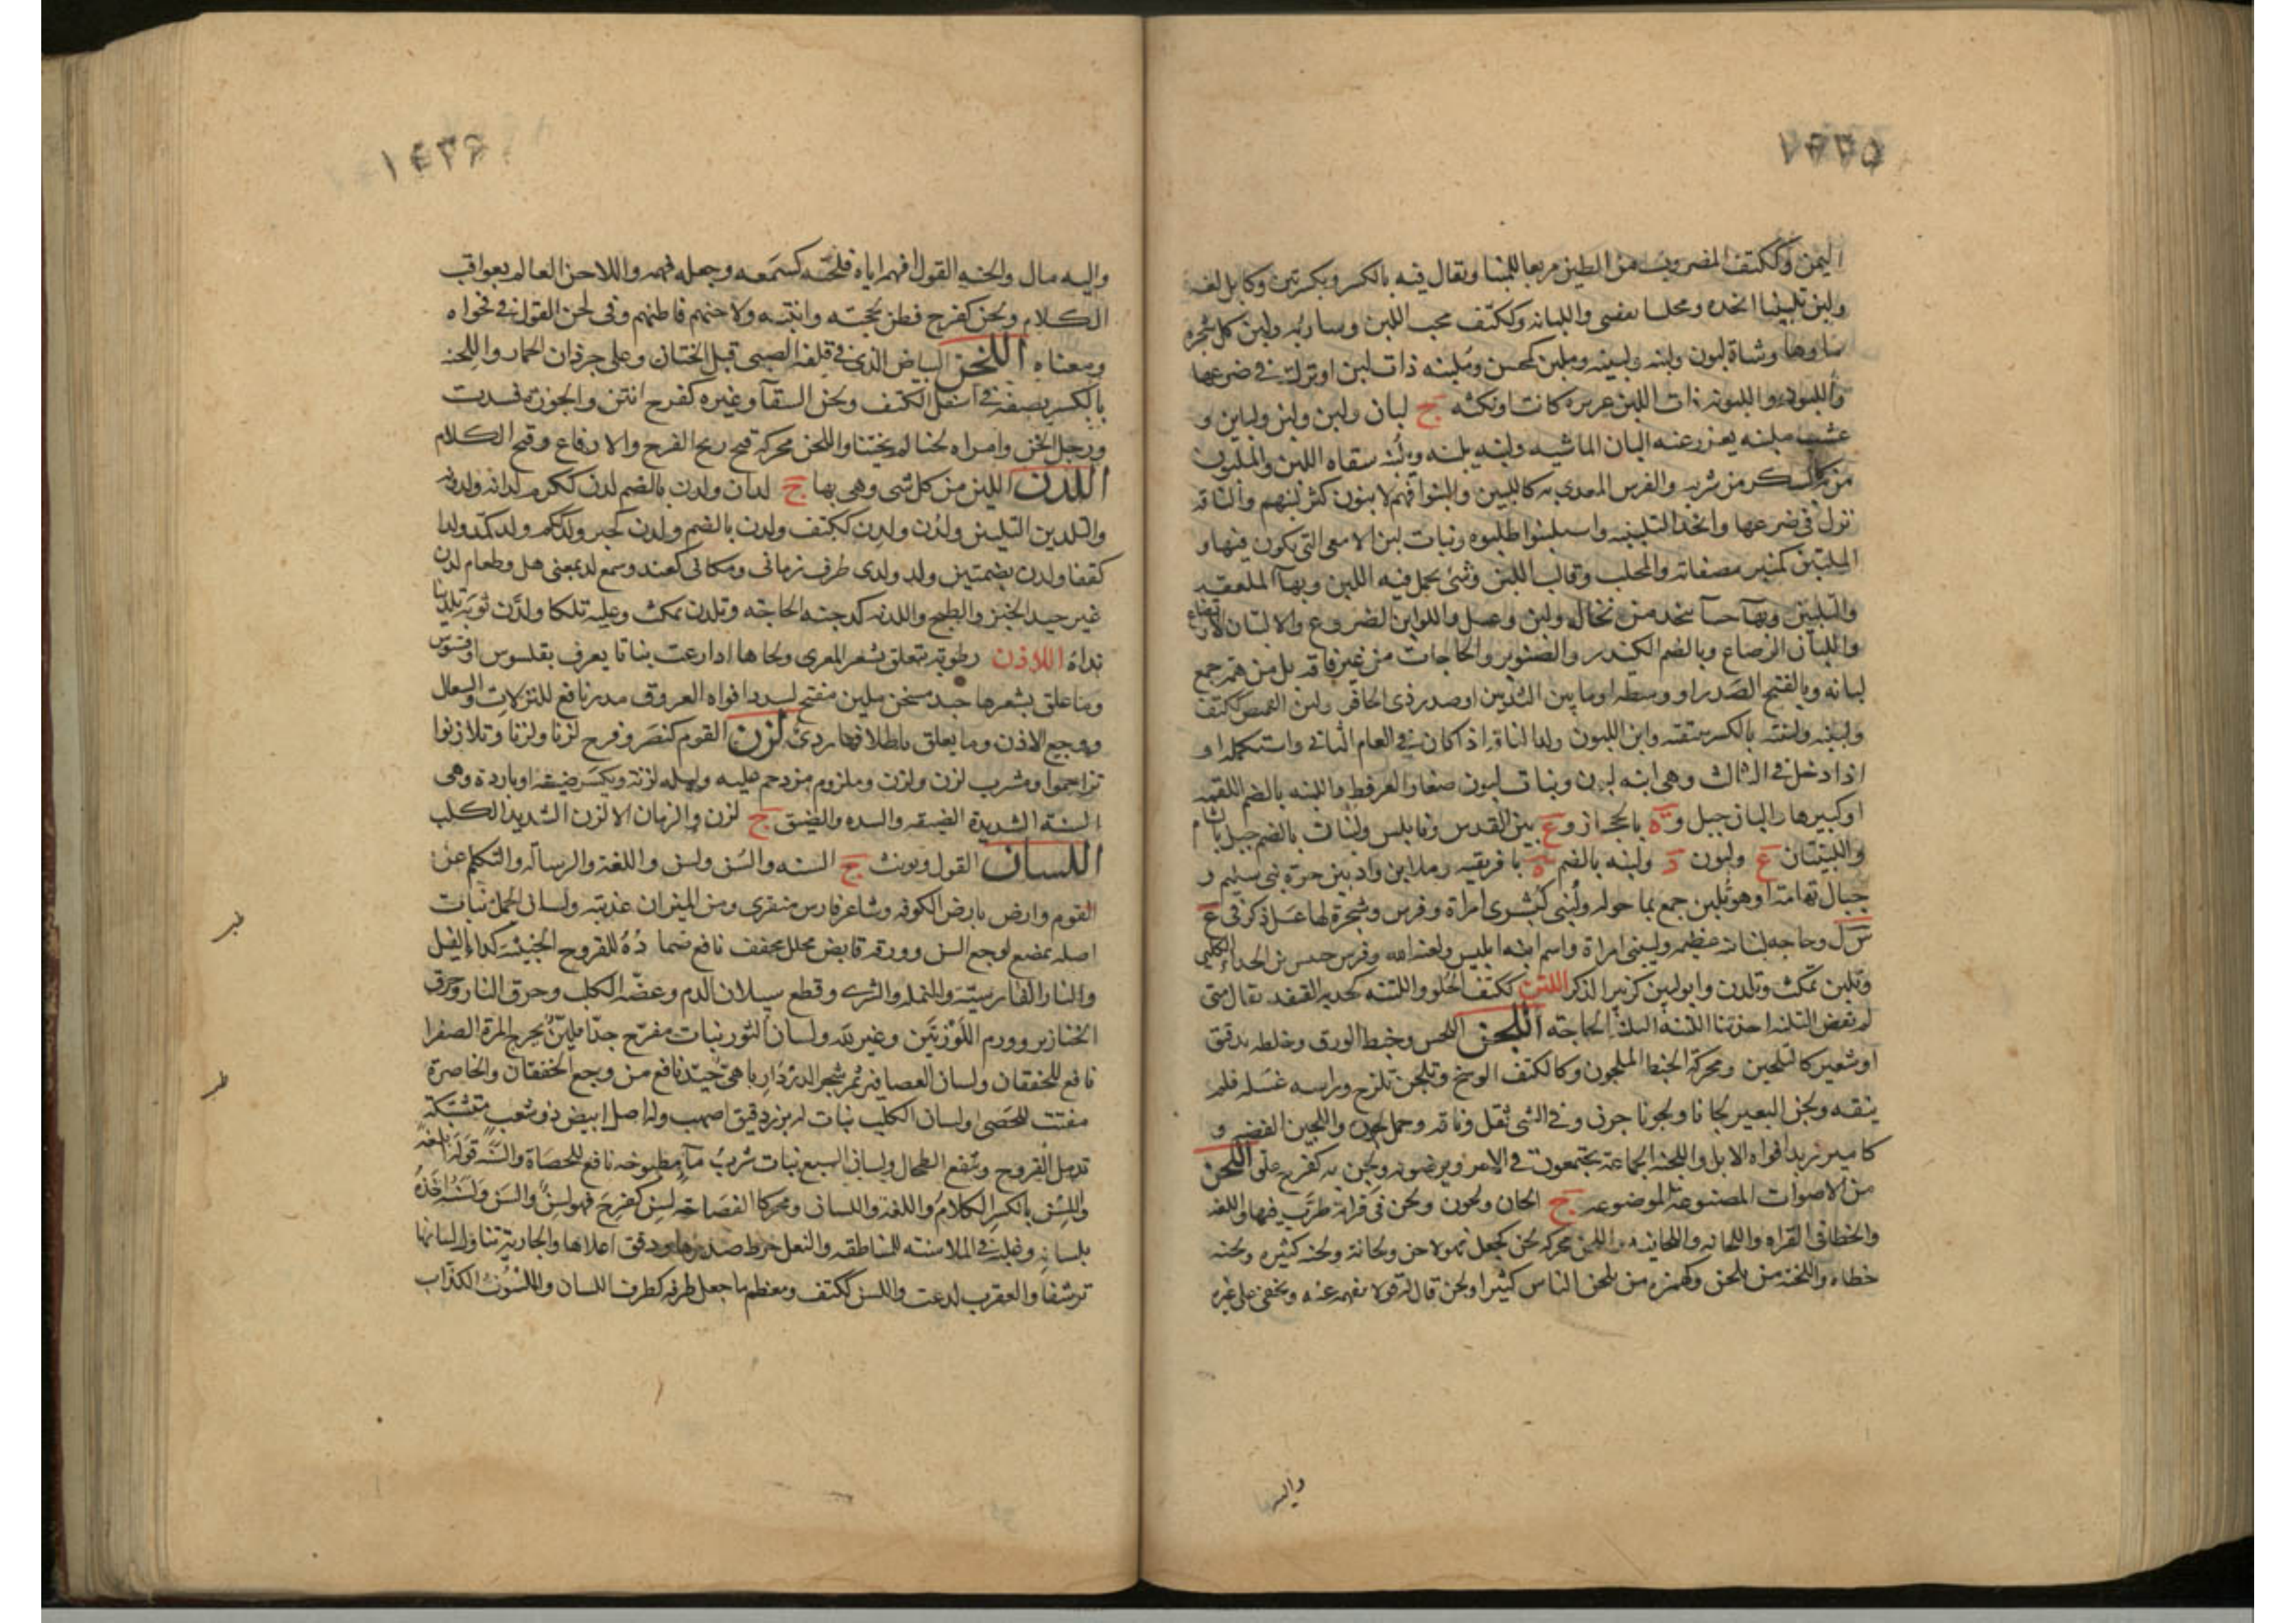 ١٤٣٥
اليمن وككتف المضروب من الطين مربعا للبنا ويقال فيه بالكسر وبكسرتين وكابل لغه
ولبن تلبينا اتخذه ومجلسا تقضى واللبانه وككتف محب اللبن وشاربه ولبن كل شجره
ماوها وشاة لبون ولبنه ولبينه وملبن كمحسن وملبنه ذات لبن او نزل في ضرعها
واللبون واللبونه ذات اللبن غزيره كانت او بكئه ج لبان ولبن ولبن ولباين و
عشب ملبنه يغزر عنه البان الماشيه ولبنه يلبنه ويلبنه سقاه اللبن والملبون
من سكر من شربه والفرس المغذى به كاللبين والبنوا فهم لابنون كثر لبنهم والناقه
نزل في ضرعها واتخذ التلبينه واستلبنوا طلبوه وبنات لبن الامعى التي يكون فيها و
الملبن كمنبر مصفاته والمحلب وقالب اللبن وشئ يحمل فيه اللبن وبهاء الملعقه
والتلبين وبهاء حسا يتخذ من نخاله ولبن وعسل واللوابن الضروع والالتبان الارتضاع
واللبان الرضاع وبالضم الكندر والصنوبر والحاجات من غير فاقه بل من همه جمع
لبانه وبالفتح الصدر او وسطه او ما بين الثديين او صدر ذى الحافر ولبن القميص ككتف
ولبينه ولبنته بالكسر بنيقته وابن اللبون ولد الناقه اذا كان في العام الثاني واستكمله او
اذا دخل في الثالث وهي ابنه لبون وبنات لبون صغار العرفط واللبنه بالضم اللقمه
او كبيرها ولبان جبل وة بالحجاز وع بين القدس ونابلس ولبنان بالضم جبل بالشام
واللبنتان ع ولبون د ولبنه بالضم ة بافريقيه وملابن واد بين حرة بني سليم و
جبال تهامه او هو يلبن جمع بما حوله ولبنى كبشرى امراة وفرس وشجرة لها عسل ذكر في ع
س ل وحاجه لبنانيه عظيمه ولبينى امراة واسم ابنه ابليس لعنه الله وفرس خنبس بن الحداء الكلبي
وتلبن تمكث وتلدن وابو لبين كزبير الذكر اللتن ككتف الحلو واللتنه كحدره القنفذ يقال متى
لم نقض التلنه اخذتنا اللتنه التلنه الحاجه اللجن اللحس وخبط الورق وخلطه بدقيق
او شعير كالتلجين ومحركة الخبط الملجون وككتف الوسخ وتلجن تلزج وراسه غسله فلم
ينقه ولجن البعير لجانا ولجونا حرن وفي المشي ثقل وناقه وجمل لجون واللجين الفضه و
كامير زبد افواه الابل واللجنه الجماعة يجتمعون في الامر ويرضونه ولجن به كفرح علق اللحن
من الاصوات المصنوعه الموضوعه ج الحان ولحون ولحن في قراته طرب فيها واللغه
والخطا في القراه واللحانه واللحانيه واللحن محركه لحن كجعل فهو لاحن ولحانة ولحنه كثيره ولحنه
خطاه واللحنه من يلحن وكهمزه من يلحن الناس كثيرا ولحن قال له قولا يفهمه عنه ويخفى على غيره
واليه
١٤٣٦
واليه مال والحنه القول افهمه اياه فلحنه كسمعه وجعله فهمه واللاحن العالم بعواقب
الكلام ولحن كفرح فطن لحجته وانتبه ولاحنهم فاطنهم وفي لحن القول في فحواه
ومعناه اللخن البياض الذي في قلفه الصبي قبل الختان وعلى جردان الحمار واللخنه
بالكسر بضعه في اسفل الكتف ولخن السقا وغيره كفرح انتن والجوزة فسدت
ورجل الخن وامراه لخنا لم يختنا واللخن محركه قبح ريح الفرج والارفاغ وقبح الكلام
اللدن اللين من كل شى وهي بها ج لدان ولدن بالضم لدن ككرم لدانه ولدونه
والتلدين التليين ولدن ولدن ككتف ولدن بالضم ولدن كجير ولدكم ولد كمذ ولدا
كقفا ولدن بضمتين ولد ولدى ظرف زماني ومكاني كعند وسمع لد بمعنى هل وطعام لدن
غير جيد الخبز والطبخ واللدنه كدجنه الحاجه وتلدن تمكث وعليه تلكا ولدن ثوبه تلدينا
نداه اللاذن رطوبة تتعلق بشعر المعزى ولحاها اذا رعت نباتا يعرف بقلسوس او قستوس
وما علق بشعرها جيد مسخن ملين مفتح لسدد افواه العروق مدر نافع للنزلات والسعال
ووجع الاذن وما يعلق باظلافها ردئ لزن القوم كنصر وفرح لزنا ولزنا وتلازنوا
تزاحموا ومشرب لزن ولزن وملزوم مزدحم عليه وليله لزنة ويكسر ضيقه او باردة وهي
السنه الشديدة الضيقه والشده والضيق ج لزن والزمان الالزن الشديد الكلب
اللسان القول ويونث ج السنه والسن ولسن واللغة والرساله والتكلم عن
القوم وارض بارض الكوفه وشاعر فارس منقرى ومن الميزان عذبته ولسان الحمل نبات
اصله يمضغ لوجع السن وورقه قابض محلل مجفف نافع ضماده للقروح الخبيثه كداء الفيل
والنار الفارسيه والنمله والشرى وقطع سيلان الدم وعضه الكلب وحرق النار وحرق
الخنازير وورم اللوزتين وغير ذلك ولسان الثور نبات مفرح جدا ملين يخرج المرة الصفرا
نافع للخفقان ولسان العصافير ثمر شجر الدردار باهي جيد نافع من وجع الخفقان والخاصرة
مفتت للحصى ولسان الكلب نبات له بزر دقيق اصهب وله اصل ابيض ذو شعب متشبكة
تدمل القروح وينفع الطحال ولسان السبع نبات شرب ماء مطبوخه نافع للحصاة والسنه قوله ابلغه
واللسن بالكسر الكلام واللغه واللسان ومحركا الفصاحه لسن كفرح فهو لسن والسن ولسنه اخذه
بلسانه وغلبه في الملاسنه للمناطقه والنعل خرط صدرها ودقق اعلاها والجارية تناول لسانها
ترشفا والعقرب لدغت واللسن ككتف ومعظم ما جعل طرفه كطرف اللسان والملسون الكذاب